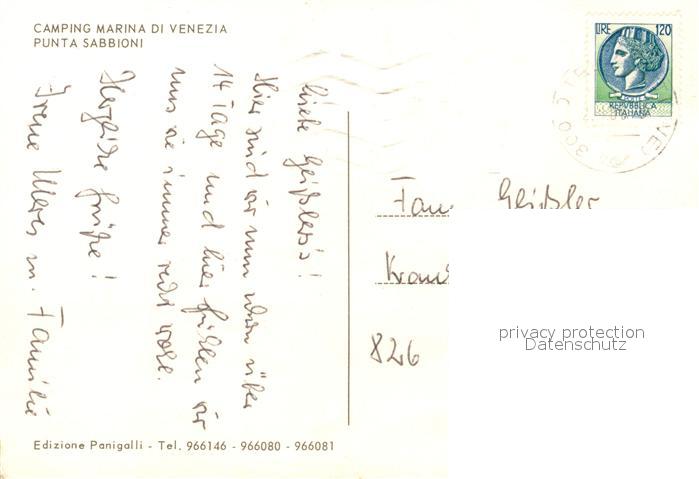 CAMPING MARINA DI VENEZIA
PUNTA SABBIONI
Liebe Geißler's!
Hier sind wir nun schon über
14 Tage und hier fühlen wir
uns wie immer recht wohl.
Herzliche Grüße!
Irene u. Familie
LIRE 120
POSTE
REPVBBLICA
ITALIANA
Fam. Geißler
826
privacy protection
Datenschutz
Edizione Panigalli - Tel. 966146 - 966080 - 966081